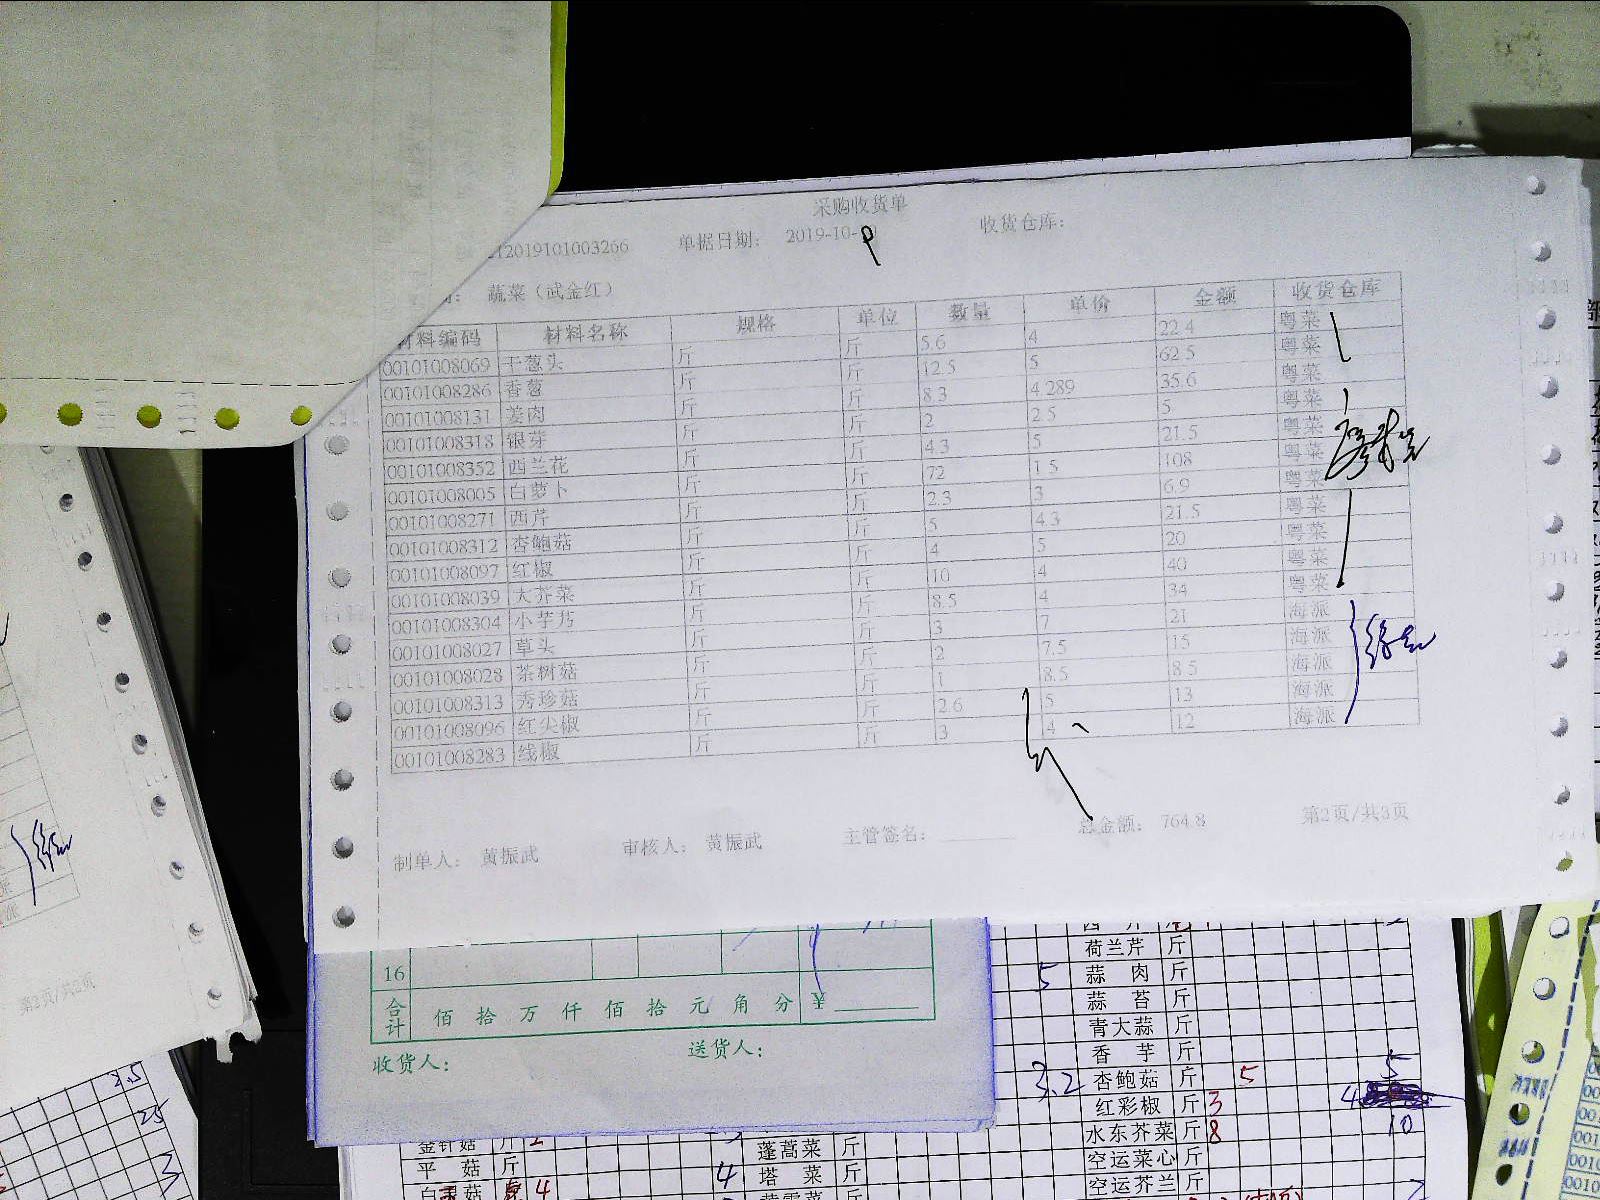 采购收货单
12019101003266 单据日期： 2019-10- 9 收货仓库：
蔬菜（武金红）
材料编码 材料名称 规格 单位 数量 单价 金额 收货仓库
00101008069 干葱头 斤 斤 5.6 4 22.4 粤菜
00101008286 香葱 斤 斤 12.5 5 62.5 粤菜
00101008131 姜肉 斤 斤 8.3 4.289 35.6 粤菜
00101008318 银芽 斤 斤 2 2.5 5 粤菜
00101008352 西兰花 斤 斤 4.3 5 21.5 粤菜
00101008005 白萝卜 斤 斤 72 1.5 108 粤菜
00101008271 西芹 斤 斤 2.3 3 6.9 粤菜
00101008312 杏鲍菇 斤 斤 5 4.3 21.5 粤菜
00101008097 红椒 斤 斤 4 5 20 粤菜
00101008039 大芥菜 斤 斤 10 4 40 粤菜
00101008304 小芋艿 斤 斤 8.5 4 34 粤菜
00101008027 草头 斤 斤 3 7 21 海派
00101008028 茶树菇 斤 斤 2 7.5 15 海派
00101008313 秀珍菇 斤 斤 1 8.5 8.5 海派
00101008096 红尖椒 斤 斤 2.6 5 13 海派
00101008283 线椒 斤 斤 3 4 12 海派
制单人： 黄振武 审核人： 黄振武 主管签名： 总金额： 764.8 第2页/共3页
16
合计 佰 拾 万 仟 佰 拾 元 角 分 ¥
收货人： 送货人：
第2页/共2页
2.5
25
3
西 芹 斤
荷兰芹 斤
5 蒜 肉 斤
蒜 苔 斤
青大蒜 斤
香 芋 斤
3.2 杏鲍菇 斤 5 5
红彩椒 斤 3 4
水东芥菜 斤 8 10
空运菜心 斤
空运芥兰 斤
金针菇 斤 2
平 菇 斤
4
蓬蒿菜 斤
4 塔 菜 斤